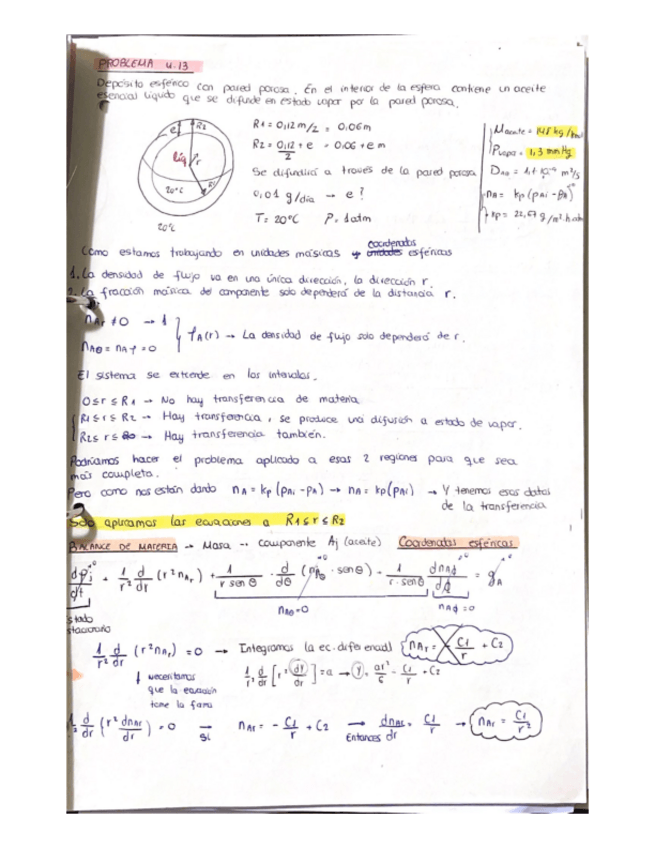 PROBLEMA 4.13
Depósito esférico con pared porosa. En el interior de la esfera contiene un aceite
esencial líquido que se difunde en estado vapor por la pared porosa.
e R2
líq r
R1
20°C
20°C
R1 = 0,12m/2 = 0,06m
R2 = 0,12/2 + e = 0,06 + e m
Se difundirá a través de la pared porosa
0,01 g/día → e?
T = 20°C P = 1 atm
Maceite = 145 kg/kmol
Pvapor = 1,3 mmHg
m²/s
nA = kp (pAi - pA)
kp = 22,67 g/m².h.atm
Como estamos trabajando en unidades másicas y coordenadas esféricas
1. La densidad de flujo va en una única dirección, la dirección r.
2. La fracción másica del componente solo dependerá de la distancia r.
nAr ≠ 0 → 1
nAθ = nAφ = 0
φA(r) → La densidad de flujo solo dependerá de r.
El sistema se extiende en los intervalos.
0≤r≤R1 → No hay transferencia de materia
R1≤r≤R2 → Hay transferencia, se produce una difusión a estado de vapor.
R2≤r≤∞ → Hay transferencia también.
Podríamos hacer el problema aplicado a esas 2 regiones para que sea
más completa.
Pero como nos están dando nA = kp (pAi - pA) → nA = kp(pAi) → Y tenemos esos datos
de la transferencia
Solo aplicamos las ecuaciones a R1≤r≤R2
BALANCE DE MATERIA → Masa → componente Aj (aceite) Coordenadas esféricas
dρj/dt + 1/r² d/dr (r²nAr) + 1/r senθ · d/dθ (nAθ · senθ) + 1/r·senθ dnAφ/dφ = gA
nAθ=0
nAφ=0
stado
stacionario
1/r² d/dr (r²nAr) = 0 → Integramos la ec. diferencial nAr = - C1/r + C2
↓ necesitamos
que la ecuación
tome la forma
1/r² d/dr [r² dy/dr] = a → y = ar²/6 - C1/r + C2
d/dr (r² dnAr/dr) = 0 → Si nAr = - C1/r + C2 → Entonces dnAr/dr = C1/r → nAr = C1/r²